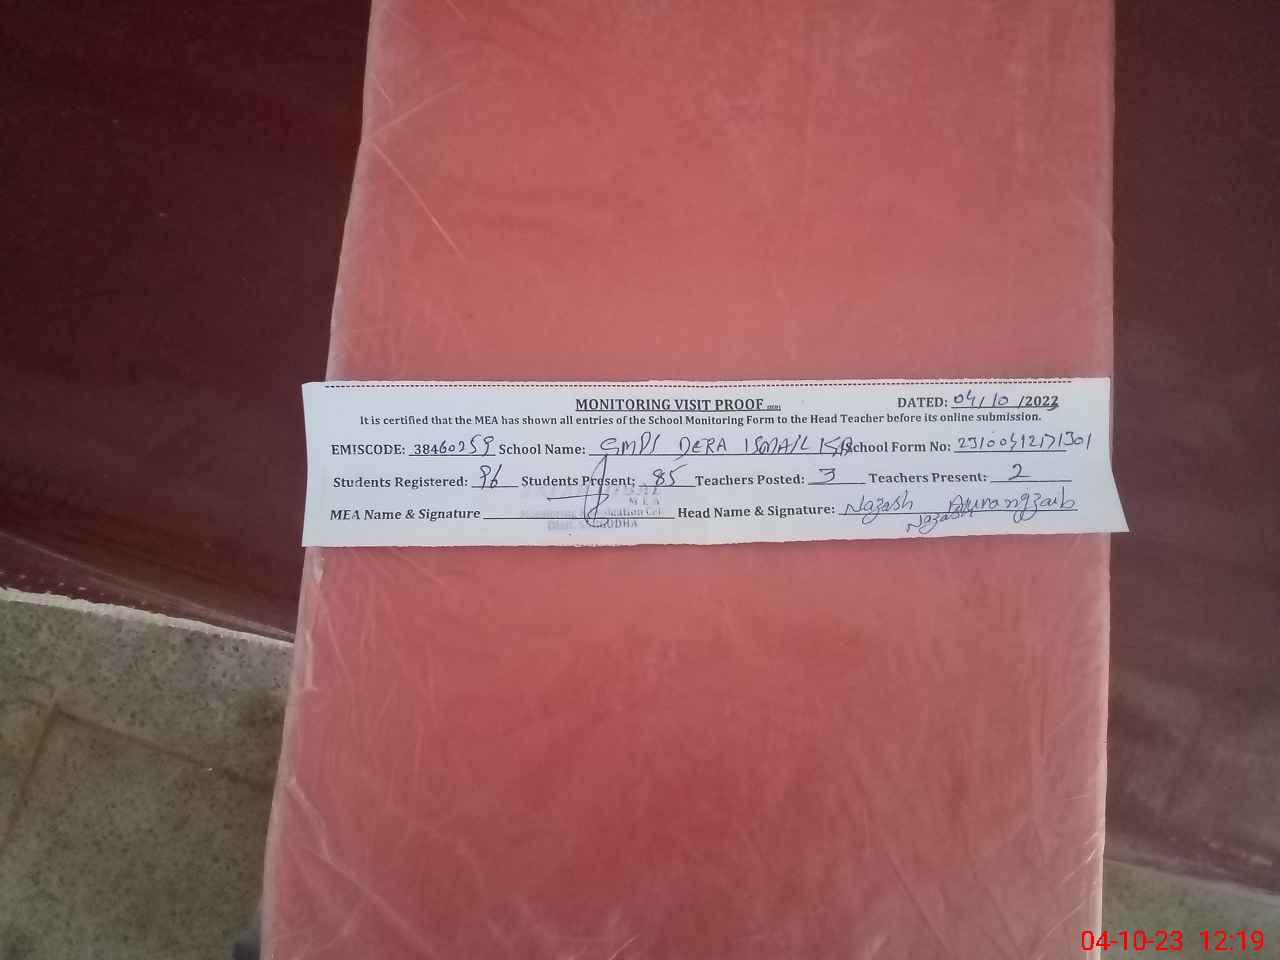 MONITORING VISIT PROOF DATED: 04/10/2023
It is certified that the MEA has shown all entries of the School Monitoring Form to the Head Teacher before its online submission.
EMISCODE: 38460259 School Name: GMPS DERA ISMAIL School Form No:
Students Registered: 96 Students Present: 85 Teachers Posted: 3 Teachers Present: 2
MEA Name & Signature Head Name & Signature: Nazash Aurangzaib
Nazash
MEA
04-10-23 12:19